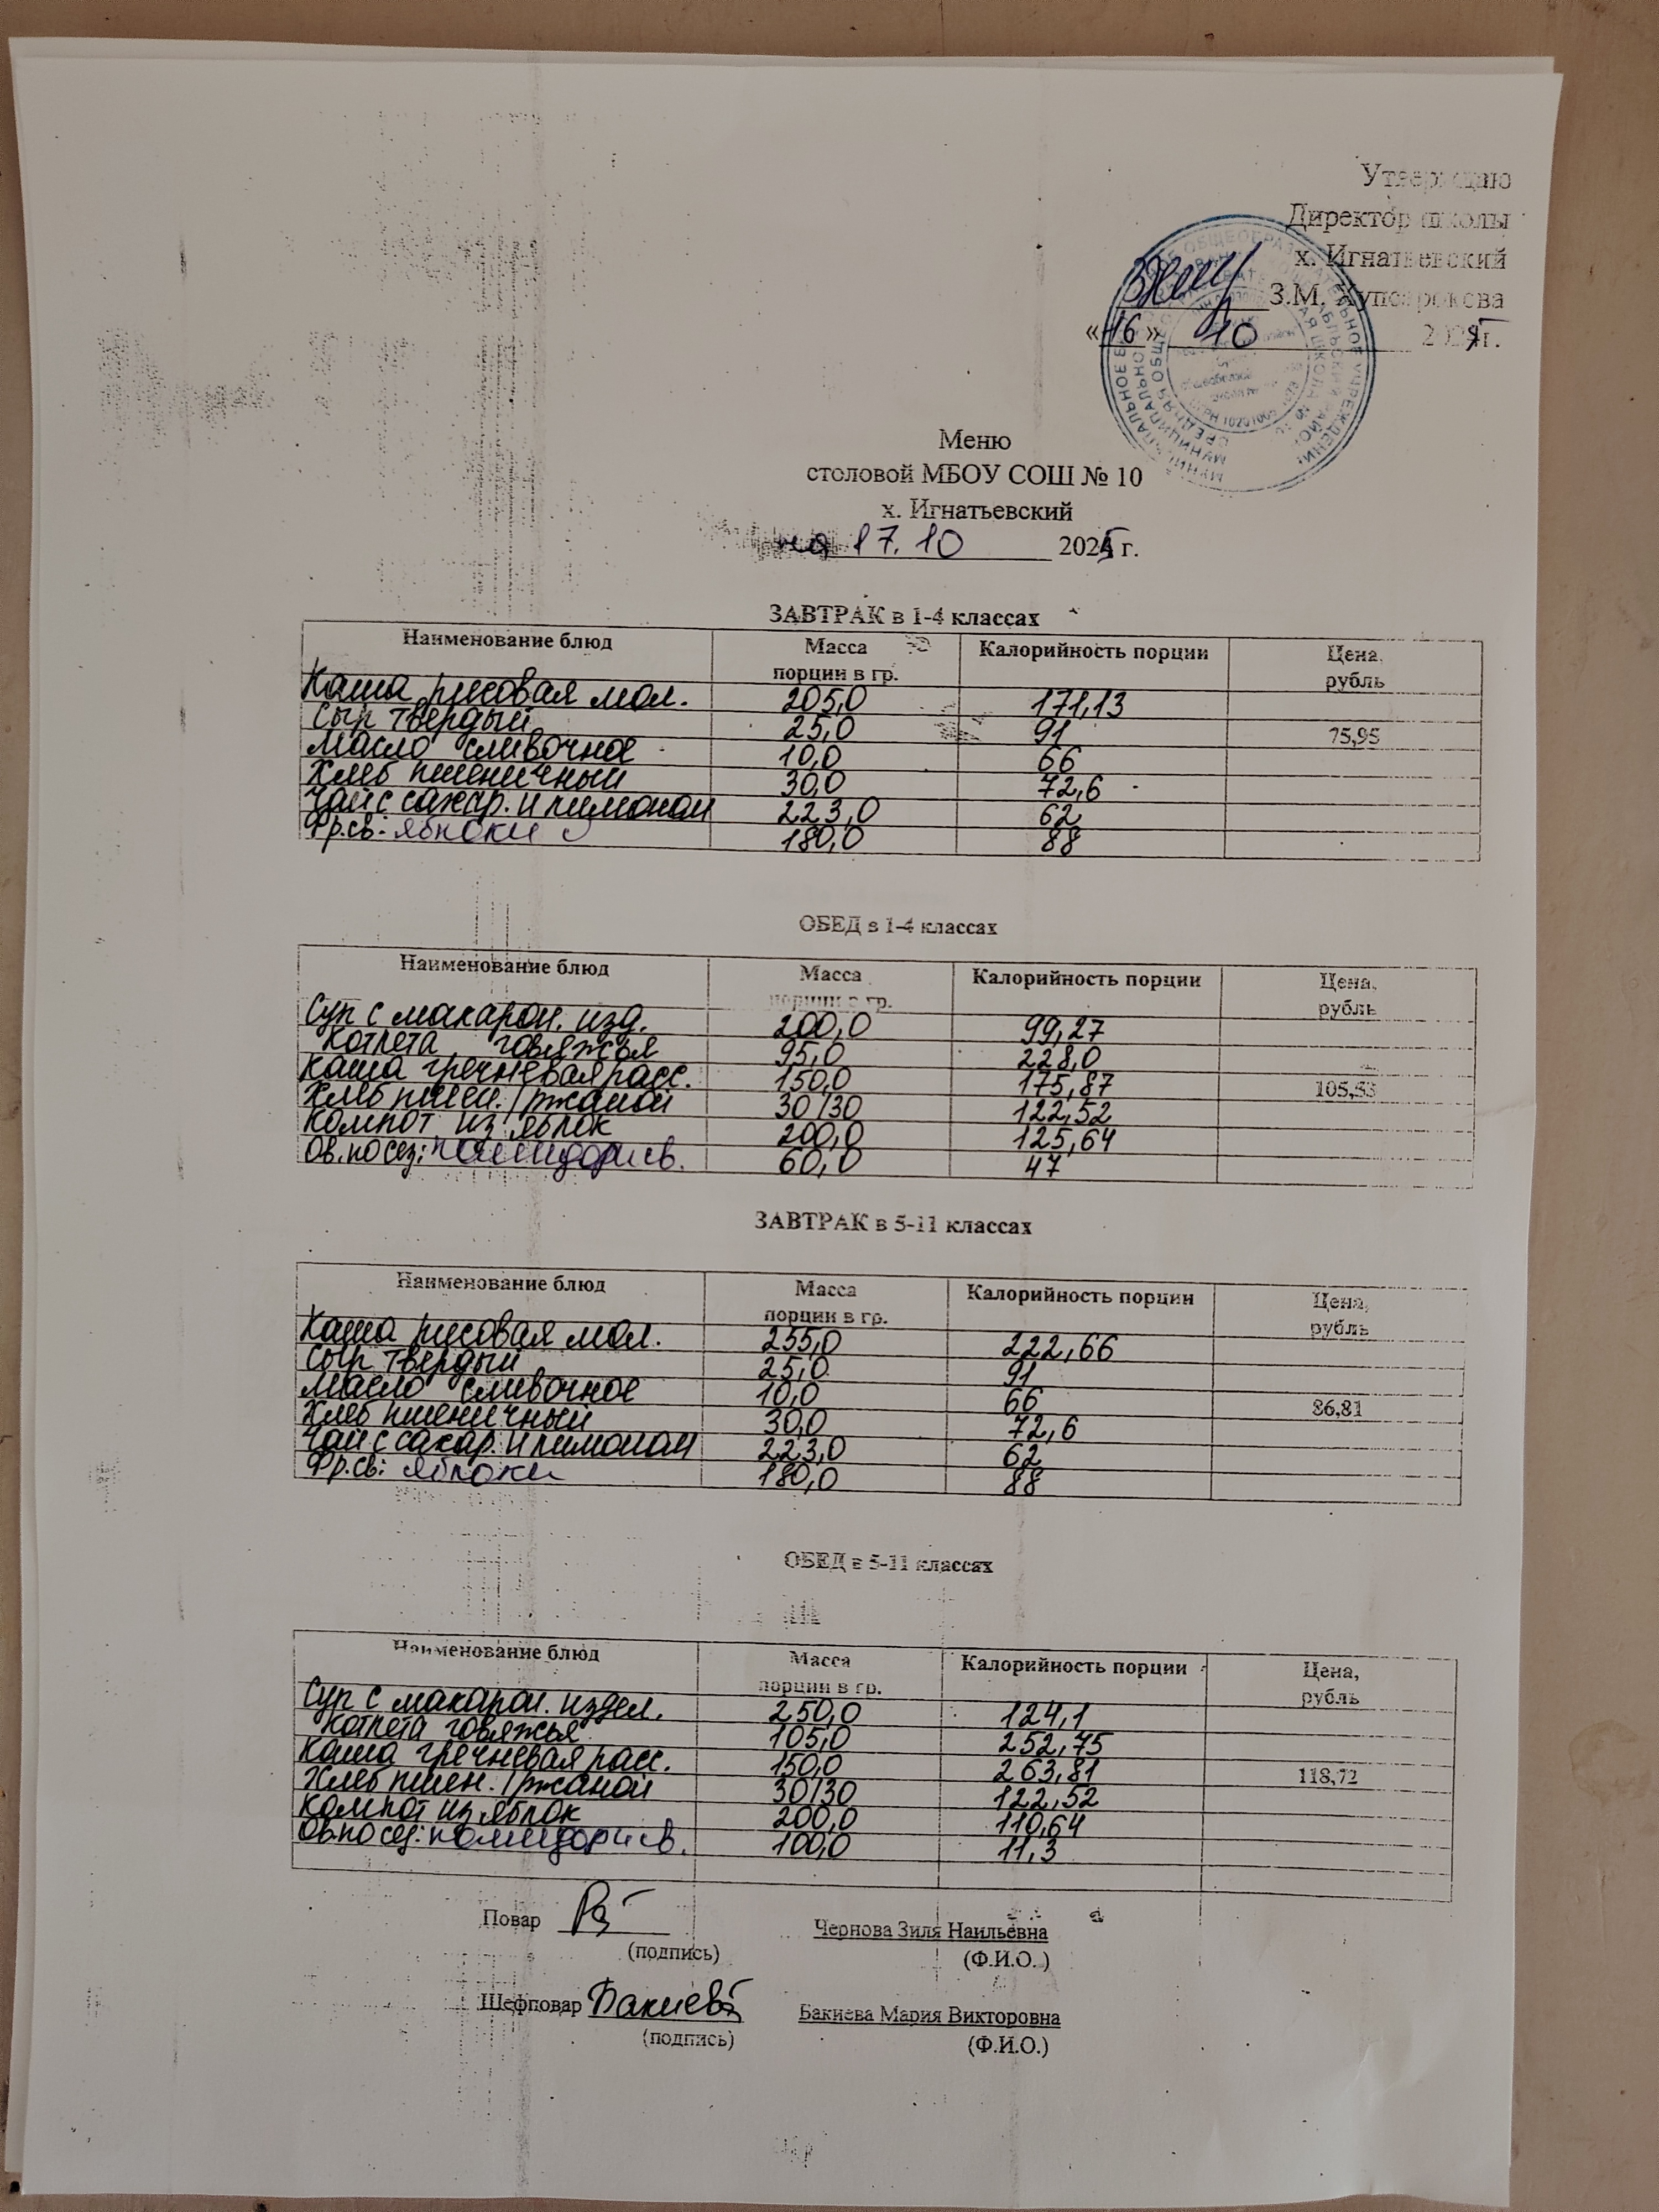 Утверждаю
Директор школы
х. Игнатьевский
З.М.
«16» 10 2025г.
Меню
столовой МБОУ СОШ № 10
х. Игнатьевский
на 17.10 2025 г.
ЗАВТРАК в 1-4 классах
Наименование блюд Масса порции в гр. Калорийность порции Цена, рубль
Каша рисовая мол. 205,0 171,13
Сыр твердый 25,0 91 75,95
Масло сливочное 10,0 66
Хлеб пшеничный 30,0 72,6
Чай с сахар. и лимоном 223,0 62
Фр.св: яблоки 180,0 88
ОБЕД в 1-4 классах
Наименование блюд Масса порции в гр. Калорийность порции Цена, рубль
Суп с макарон. изд. 200,0 99,27
Котлета говяжья 95,0 228,0
Каша гречневая расс. 150,0 175,87 105,53
Хлеб пшен./ржаной 30/30 122,52
Компот из яблок 200,0 125,64
Ов.по сез: помидоры св. 60,0 47
ЗАВТРАК в 5-11 классах
Наименование блюд Масса порции в гр. Калорийность порции Цена, рубль
Каша рисовая мол. 255,0 222,66
Сыр твердый 25,0 91
Масло сливочное 10,0 66 86,81
Хлеб пшеничный 30,0 72,6
Чай с сахар. и лимоном 223,0 62
Фр.св: яблоки 180,0 88
ОБЕД в 5-11 классах
Наименование блюд Масса порции в гр. Калорийность порции Цена, рубль
Суп с макарон. издел. 250,0 124,1
Котлета говяжья 105,0 252,75
Каша гречневая расс. 150,0 263,81 118,72
Хлеб пшен./ржаной 30/30 122,52
Компот из яблок 200,0 110,64
Ов.по сез: помидоры св. 100,0 11,3
Повар Чернова Зиля Наильевна
(подпись) (Ф.И.О.)
Шефповар Бакиева Бакиева Мария Викторовна
(подпись) (Ф.И.О.)